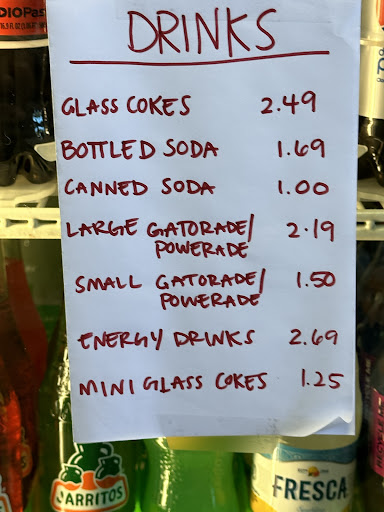 DRINKS
GLASS COKES 2.49
BOTTLED SODA 1.69
CANNED SODA 1.00
LARGE GATORADE/ 2.19
POWERADE
SMALL GATORADE/ 1.50
POWERADE
ENERGY DRINKS 2.69
MINI GLASS COKES 1.25
JARRITOS
FRESCA